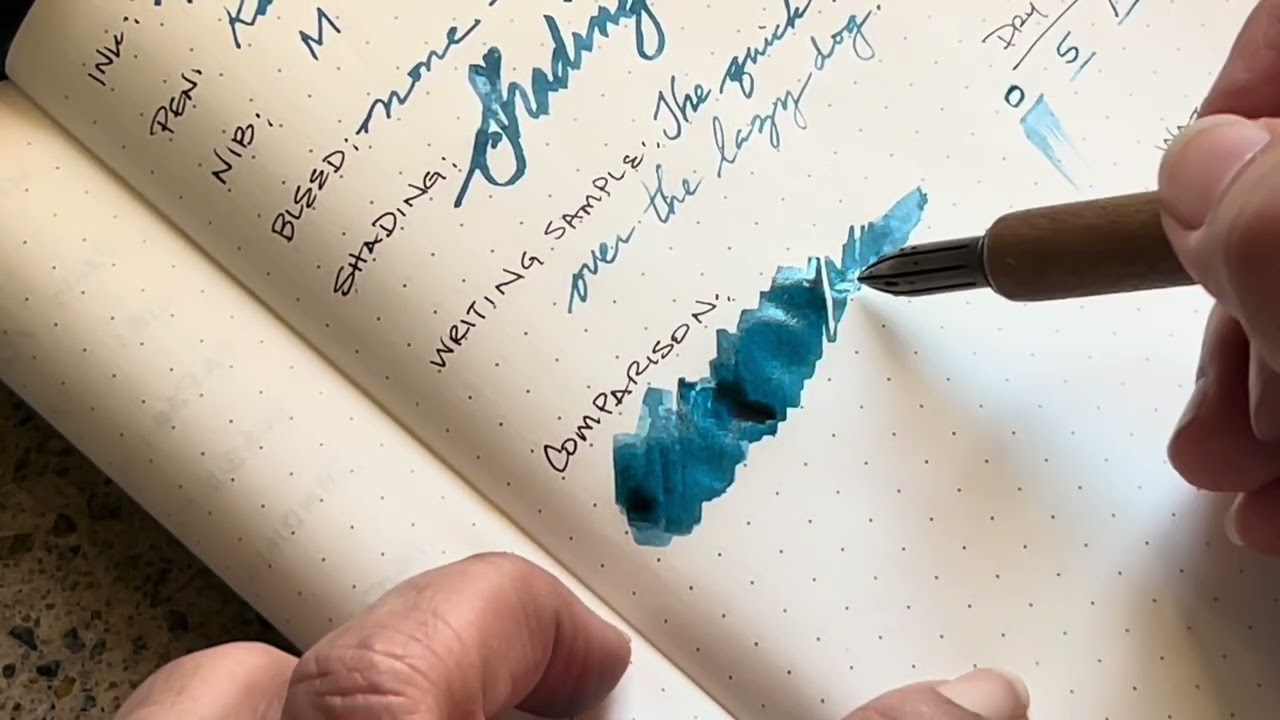 INK:
PEN:
NIB: M
BLEED: none
SHADING: Shading
WRITING SAMPLE: The quick
over the lazy dog.
COMPARISON:
DRY
5
0